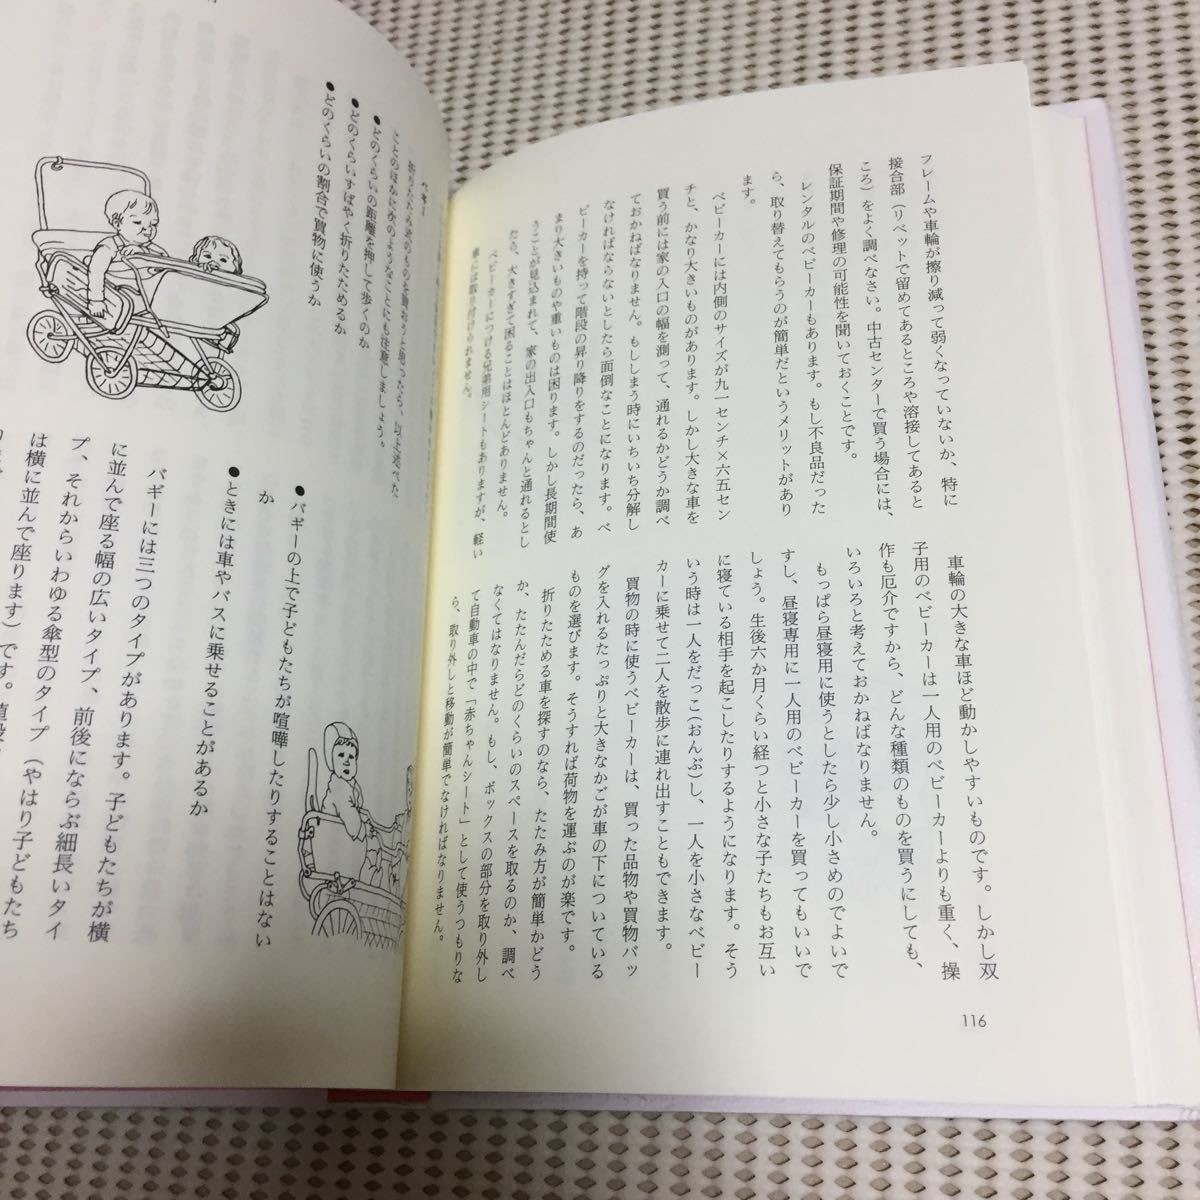 フレームや車輪が擦り減って弱くなっていないか、特に
接合部（リベットで留めてあるところや溶接してあると
ころ）をよく調べなさい。中古センターで買う場合には、
保証期間や修理の可能性を聞いておくことです。
レンタルのベビーカーもあります。もし不良品だった
ら、取り替えてもらうのが簡単だというメリットがあり
ます。
ベビーカーには内側のサイズが九一センチ×六五セン
チと、かなり大きいものがあります。しかし大きな車を
買う前には家の入口の幅を測って、通れるかどうか調べ
ておかねばなりません。もししまう時にいちいち分解し
なければならないとしたら面倒なことになります。ベ
ビーカーを持って階段の昇り降りをするのだったら、あ
まり大きいものや重いものは困ります。しかし長期間使
うことが見込まれて、家の出入口もちゃんと通れるとし
たら、大きすぎて困ることはほとんどありません。
ベビーカーにつける兄弟用シートもありますが、軽い
車には取り付けられません。
車輪の大きな車ほど動かしやすいものです。しかし双
子用のベビーカーは一人用のベビーカーよりも重く、操
作も厄介ですから、どんな種類のものを買うにしても、
いろいろと考えておかねばなりません。
もっぱら昼寝用に使うとしたら少し小さめのでよいで
すし、昼寝専用に一人用のベビーカーを買ってもいいで
しょう。生後六か月くらい経つと小さな子たちもお互い
に寝ている相手を起こしたりするようになります。そう
いう時は一人をだっこ（おんぶ）し、一人を小さなベビー
カーに乗せて二人を散歩に連れ出すこともできます。
買物の時に使うベビーカーは、買った品物や買物バッ
グを入れるたっぷりと大きなかごが車の下についている
ものを選びます。そうすれば荷物を運ぶのが楽です。
折りたためる車を探すのなら、たたみ方が簡単かどう
か、たたんだらどのくらいのスペースを取るのか、調べ
なくてはなりません。もし、ボックスの部分を取り外し
て自動車の中で「赤ちゃんシート」として使うつもりな
ら、取り外しと移動が簡単でなければなりません。
116
バギー
折りたたみ式のものを買おうと思ったら、以上述べた
ことのほかに次のようなことにも注意しましょう。
●どのくらいの距離を押して歩くのか
●どのくらいすばやく折りたためるか
●どのくらいの割合で買物に使うか
●バギーの上で子どもたちが喧嘩したりすることはない
か
●ときには車やバスに乗せることがあるか
バギーには三つのタイプがあります。子どもたちが横
に並んで座る幅の広いタイプ、前後にならぶ細長いタイ
プ、それからいわゆる傘型のタイプ（やはり子どもたち
は横に並んで座ります）です。